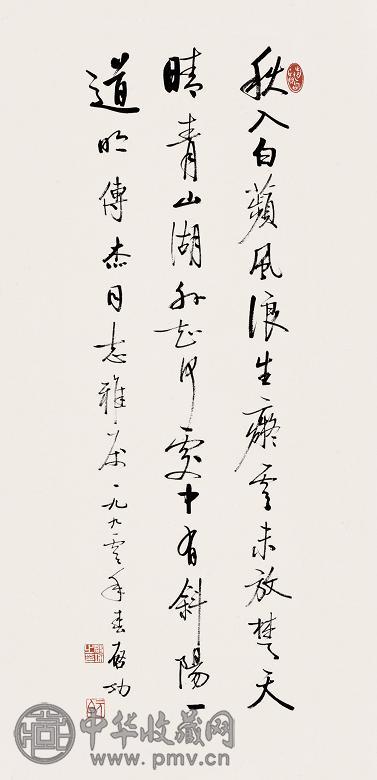 秋入白蘋風浪生癡雲未放楚天
晴青山湖外知何處中有斜陽一
道明傅杰同志雅属一九九零年春啟功
中华收藏网
www.pmv.cn